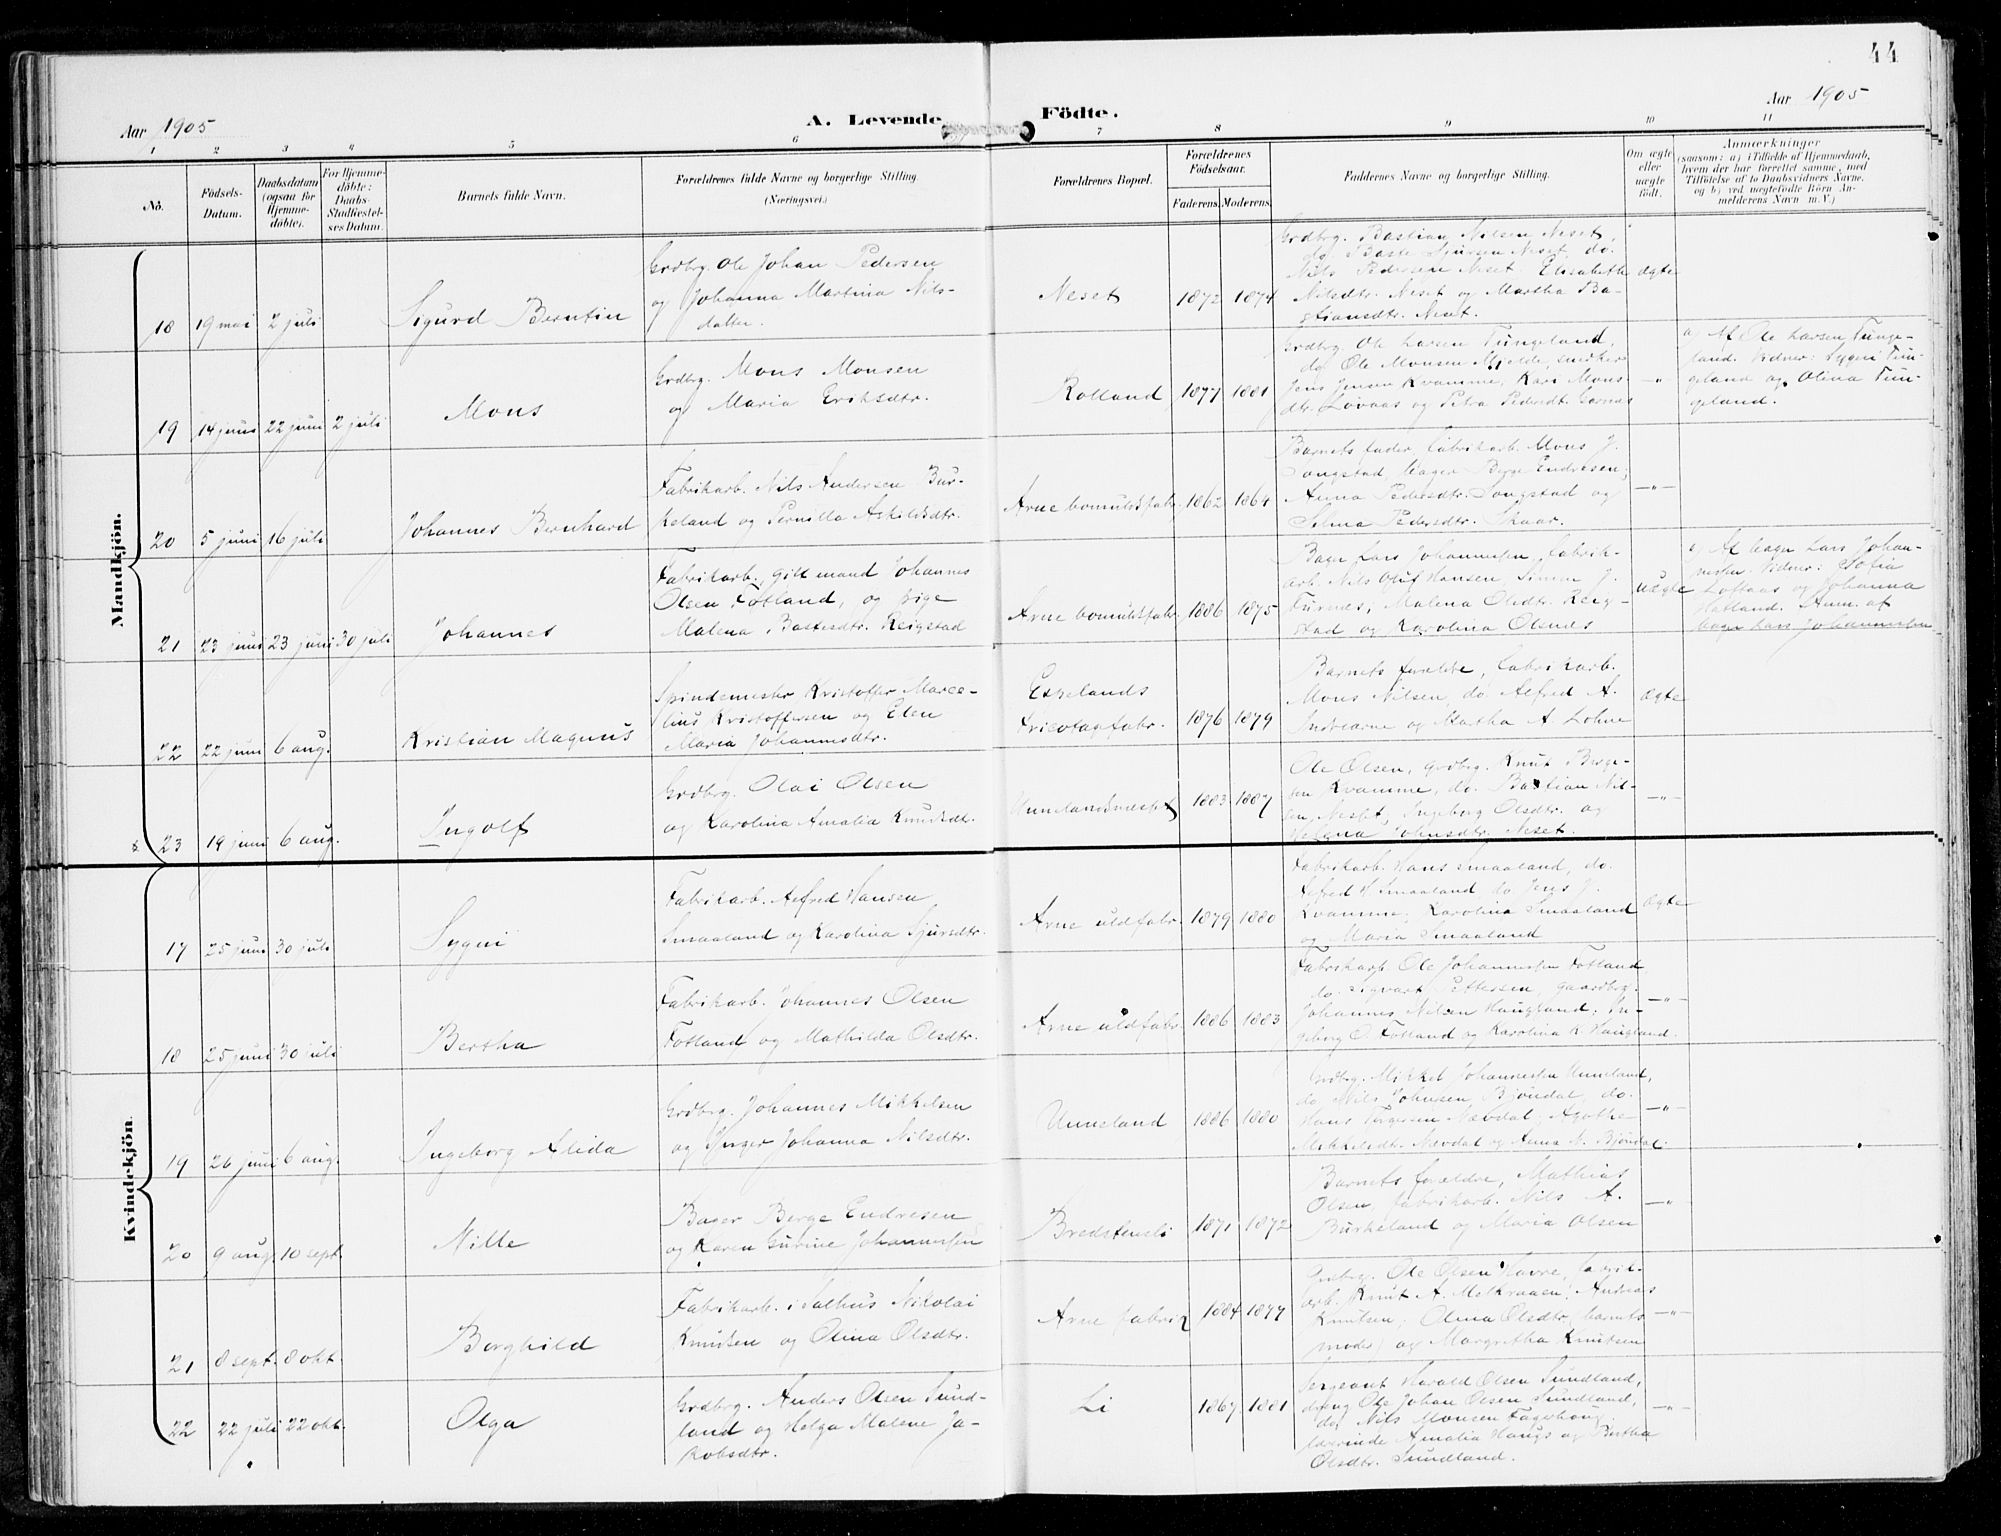 44
Aar 1905
A. Levende Födte.
Aar 1905
1 2 3 4 5 6 7 8 9 10 11
No.
Födsels-Datum.
Daabsdatum (ogsaa for Hjemme-døbte).
For Hjemme-døbte: Daabs-Stadfæstel-ses Datum.
Barnets fulde Navn.
Forældrenes fulde Navne og borgerlige Stilling. (Næringsvei.)
Forældrenes Bopæl.
Forældrenes Födselsaar.
Faderens. Moderens.
Faddernes Navne og borgerlige Stilling.
Om ægte eller uægte født.
Anmærkninger
(saasom: a) i Tilfælde af Hjemmedaab,
hvem der har forrettet samme, med
Tilföielse af to Daabsvidners Navne,
og b) ved uægtefødte Börn An-
melderens Navn m.V.)
Mandkjön.
18 19 mai 2 juli
Sigurd Berntin
Grdbrg. Ole Johan Pedersen
og Johanna Martina Nils-
datter.
Neset
1872 1874
Grdbrg. Bastian Nilsen Neset,
do. Baste Sjursen Neset, do.
Nils Pedersen Neset Elisabeth
Nilsdtr. Neset og Martha Ba-
stiansdtr. Neset.
ægte
19 14 juni 22 juni 2 juli
Mons
Grdbrg. Mons Monsen
og Maria Eriksdtr.
Rolland
1877 1881
Grdbrg. Ole Larsen Tungeland,
do Ole Monsen Mjelde, snedker
Jens Jensen Kvamme, Kari Mons-
dtr. Løvaas og Petra Pedersdt. Garnes
-"-
a) Af Ole Larsen Tunge-
land. Vidner: Sygni Tun-
geland og Olina Tun-
geland.
20 5 juni 16 juli
Johannes Bernhard
Fabrikarb. Nils Andersen Bur-
keland og Pernilla Askildsdtr.
Arne bomuldsfabr.
1862 1864
Barnets fader, fabrikarb. Mons J.
Songstad, bager Berge Endresen;
Anna Pedersdtr. Songstad og
Selma Pedersdtr. Skaar.
-"-
21 23 juni 23 juni 30 juli
Johannes
Fabrikarb., gift mand Johannes
Olsen Fotland, og pige
Malena Bastesdtr. Reigstad
Arne bomuldsfabr.
1886 1875
Bagn Lars Johannessen, fabrik-
arb. Nils Oluf Hansen, Simon J.
Furnes; Malena Olsdtr. Reig-
stad og Karolina Olsnes
uægte
a) Af bagn Lars Johan-
nessen. Vidner: Sofia
Loftaas og Johanna
Hatland. Anm. af
bagn Lars Johannessen
22 22 juni 6 aug.
Kristian Magnus
Spindemester Kristoffer Marce-
lius Kristoffersen og Elen
Maria Johannesdtr.
Espelands
tricotagefabr.
1876 1879
Barnets foreldre, fabrikarb.
Mons Nilsen, do Alfred A.
Indrearne og Martha A. Lohne
ægte
23 19 juni 6 aug.
Ingolf
Grdbrg. Olai Olsen
og Karolina Amalia Knudsdt.
Unnelandsneset
1883 1887
Ole Olsen, grdbrg. Knut Berge-
sen Kvamme, do. Bastian Nil-
sen, Neset; Ingeborg Olsdtr. og
Helena Johnsdtr. Neset.
-"-
Kvindekjön.
17 25 juni 30 juli
Sygni
Fabrikarb. Alfred Hansen
Smaaland og Karolina Sjursdtr.
Arne uldfabr.
1879 1880
Fabrikarb. Hans Smaaland, do.
Alfred H Smaaland do Jens J.
Kvamme; Karolina Smaaland
og Maria Smaaland
ægte
18 25 juni 30 juli
Bertha
Fabrikarb. Johannes Olsen
Fotland og Mathilda Olsdtr.
Arne uldfabr.
1886 1883
Fabrikarb. Ole Johannessen Fotland
do. Sigvart Pettersen, gaardbrg.
Johannes Nilsen Haugland. In-
geborg O. Fotland og Karolina K Haugland.
-"-
19 26 juni 6 aug.
Ingeborg Alida
Grdbrg. Johannes Mikkelsen
og Inger Johanna Nilsdtr.
Unneland
1886 1880
Grdbrg. Mikkel Johannessen Unneland,
do. Nils Johnsen Bjøndal, do.
Hans Torgersen Nævdal, Agathe
Mikkelsdtr. Nævdal og Anna N. Bjøndal.
-"-
20 9 aug. 10 sept.
Nille
Bager Berge Endresen
og Karen Gurine Johannessen
Bredstensli
1871 1872
Barnets foreldre, Mathias
Olsen, fabrikarb. Nils A.
Burkeland og Maria Olsen
-"-
21 8 sept. 8 okt.
Borghild
Fabrikarb. i Salhus Nikolai
Knutsen og Olina Olsdtr.
Arne fabrik
1884 1877
Grdbrg. Ole Olsen Havre, fabrik-
arb. Knut A. Melkraaen; Andreas
Knutsen; Olina Olsdtr. (barnets
moder) og Margretha Knutsen
-"-
22 22 juli 22 okt.
Olga
Grdbrg. Anders Olsen Sund-
land og Helga Malene Ja-
kobsdtr.
Li
1867 1881
Sergeant Harald Olsen Sundland,
dreng Ole Johan Olsen Sundland,
do. Nils Monsen Fagerhaug
lærerinde Amalia Haugs og Bertha
Olsdtr. Sundland.
-"-